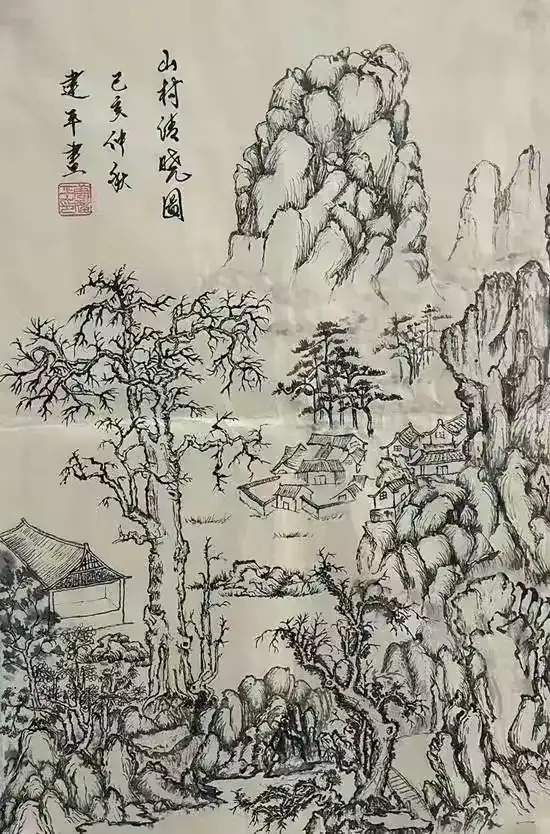 山村清晓圖
己亥仲秋
建平畫